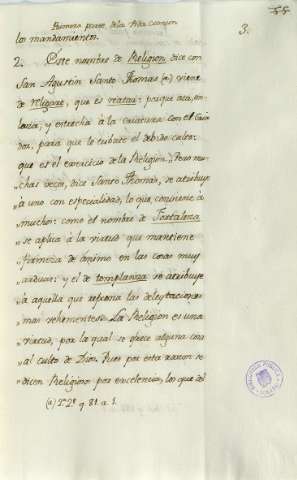 Primera parte, de la
los mandamientos.
3.
2. Este nombre de Religion, dice con
San Agustin Santo Thomas (a) viene
de religare, que es reatar: porque ata, en-
laza, y estrecha à la criatura con el Cria-
dor, para que le tribute el debido culto:
que es el exercicio de la Religion. "Mu-
"chas veces, dice Santo Thomas, se atribuye
"à uno con especialidad, lo que conviene à
"muchos: como el nombre de Fortaleza
"se aplica à la virtud que mantiene
"firmeza de animo en las cosas muy
"arduas: y el de templanza se atribuye
"à aquella que refrena las delectaciones
"mas vehementes. La Religion es una
"virtud, por la qual se ofrece alguna cosa
"al culto de Dios. Pues por esta razon se
"dicen Religiosos por excelencia, los que del
(a) 2ª 2ª q. 81. a. 1.